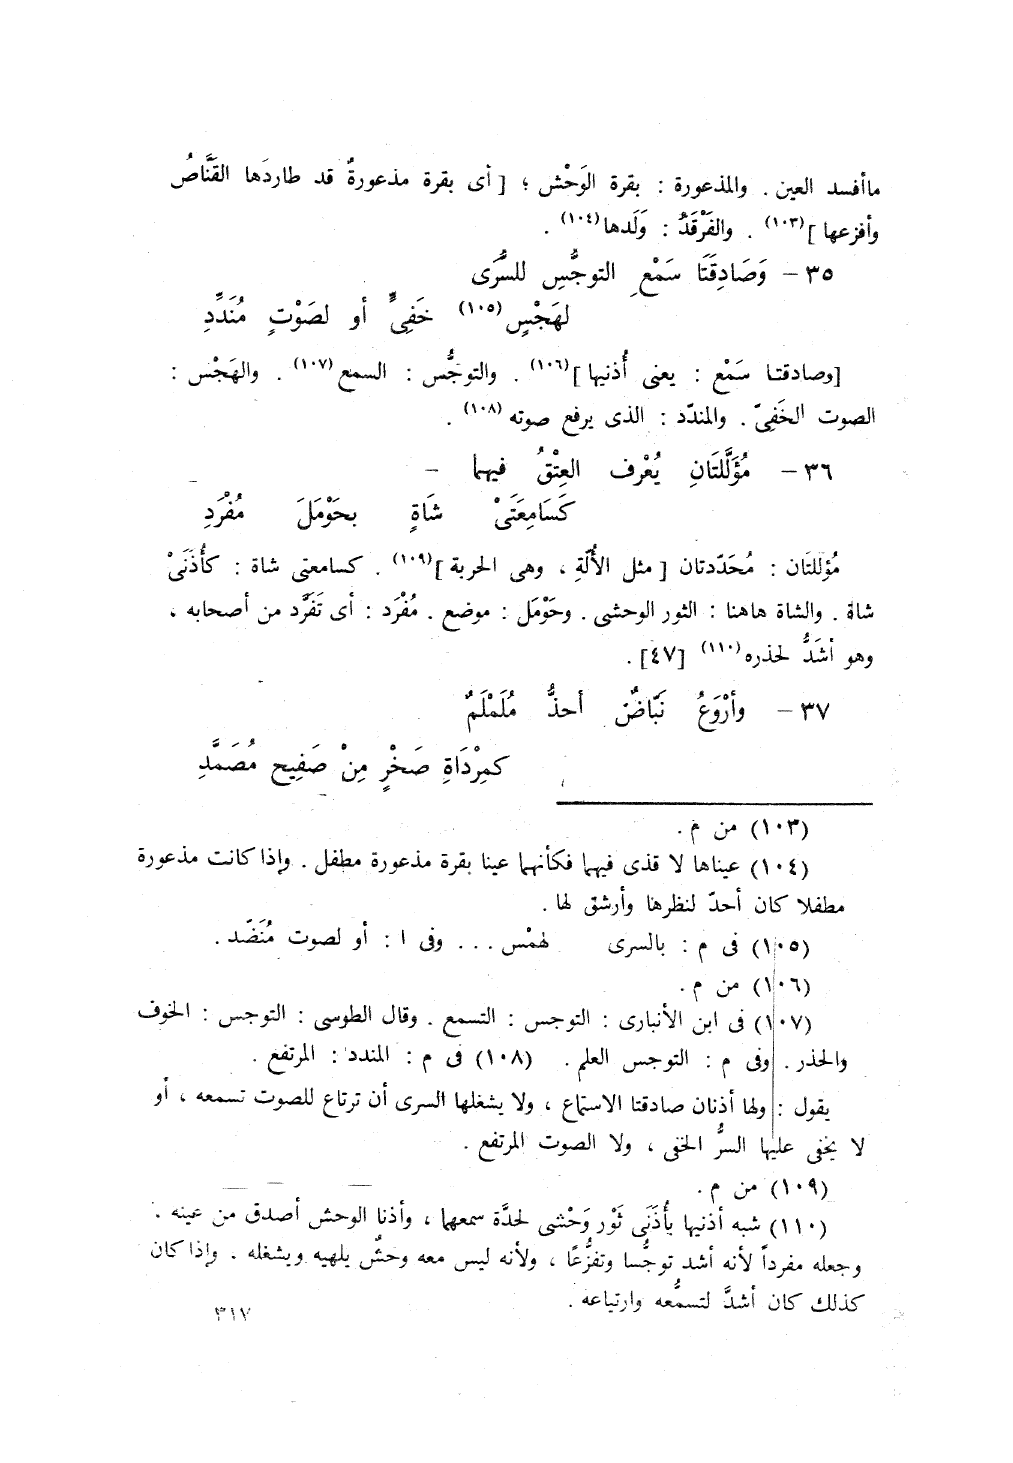 ماأفسد العين . والمذعورة : بقرة الوَحْش ؛ [ أى بقرة مذعورةٌ قد طاردَها القَنَّاصُ
وأفزعها ](١٠٣) . والفَرْقَدُ : وَلَدها(١٠٤) .
٣٥ – وَصَادِقَتَا سَمْعِ التوجُّسِ للسُّرَى
لهَجْسٍ(١٠٥) خَفِىٍّ أو لصَوْتٍ مُنَدَّدِ
[وصادقتا سَمْع : يعنى أُذنيها ](١٠٦) . والتوجُّس : السمع(١٠٧) . والهَجْس :
الصوت الخَفِىّ . والمندّد : الذى يرفع صوته(١٠٨) .
٣٦ – مُؤَلَّلتَانِ يُعْرف العِتْقُ فيهما –
كَسَامِعَتَىْ شَاةٍ بحَوْمَلَ مُفْرَدِ
مُؤللتَان : مُحَدّدتان [ مثل الأُلّةِ ، وهى الحربة ](١٠٩) . كسامعتى شاة : كأُذَنَىْ
شاة . والشاة هاهنا : الثور الوحشى . وحَوْمَل : موضع . مُفْرَد : أى تَفَرَّد من أصحابه ،
وهو أشَدُّ لحذره(١١٠) [٤٧] .
٣٧ – وأرْوَعُ نَبّاضٌ أحذُّ مُلَمْلَمٌ
كمِرْدَاةِ صَخْرٍ مِنْ صَفِيح مُصَمَّدِ
(١٠٣) من م .
(١٠٤) عيناها لا قذى فيهما فكأنهما عينا بقرة مذعورة مطفل . وإذا كانت مذعورة
مطفلا كان أحدّ لنظرها وأرشق لها .
(١٠٥) فى م : بالسرى لهمْس ... وفى ا : أو لصوت مُنَضّد .
(١٠٦) من م .
(١٠٧) فى ابن الأنبارى : التوجس : التسمع . وقال الطوسى : التوجس : الخوف
والحذر . وفى م : التوجس العلم . (١٠٨) فى م : المندد : المرتفع .
يقول : ولها أذنان صادقتا الاستماع ، ولا يشغلها السرى أن ترتاع للصوت تسمعه ، أو
لا يخفى عليها السرُّ الخفى ، ولا الصوت المرتفع .
(١٠٩) من م .
(١١٠) شبه أذنيها بأُذَنَى ثَوْر وَحْشى لحدَّة سمعهما ، وأذنا الوحش أصدق من عينه .
وجعله مفرداً لأنه أشد توجُّسا وتفزُّعًا ، ولأنه ليس معه وحشٌ يلهيه ويشغله . وإذا كان
كذلك كان أشدَّ لتسمُّعه وارتياعه .
٣١٧